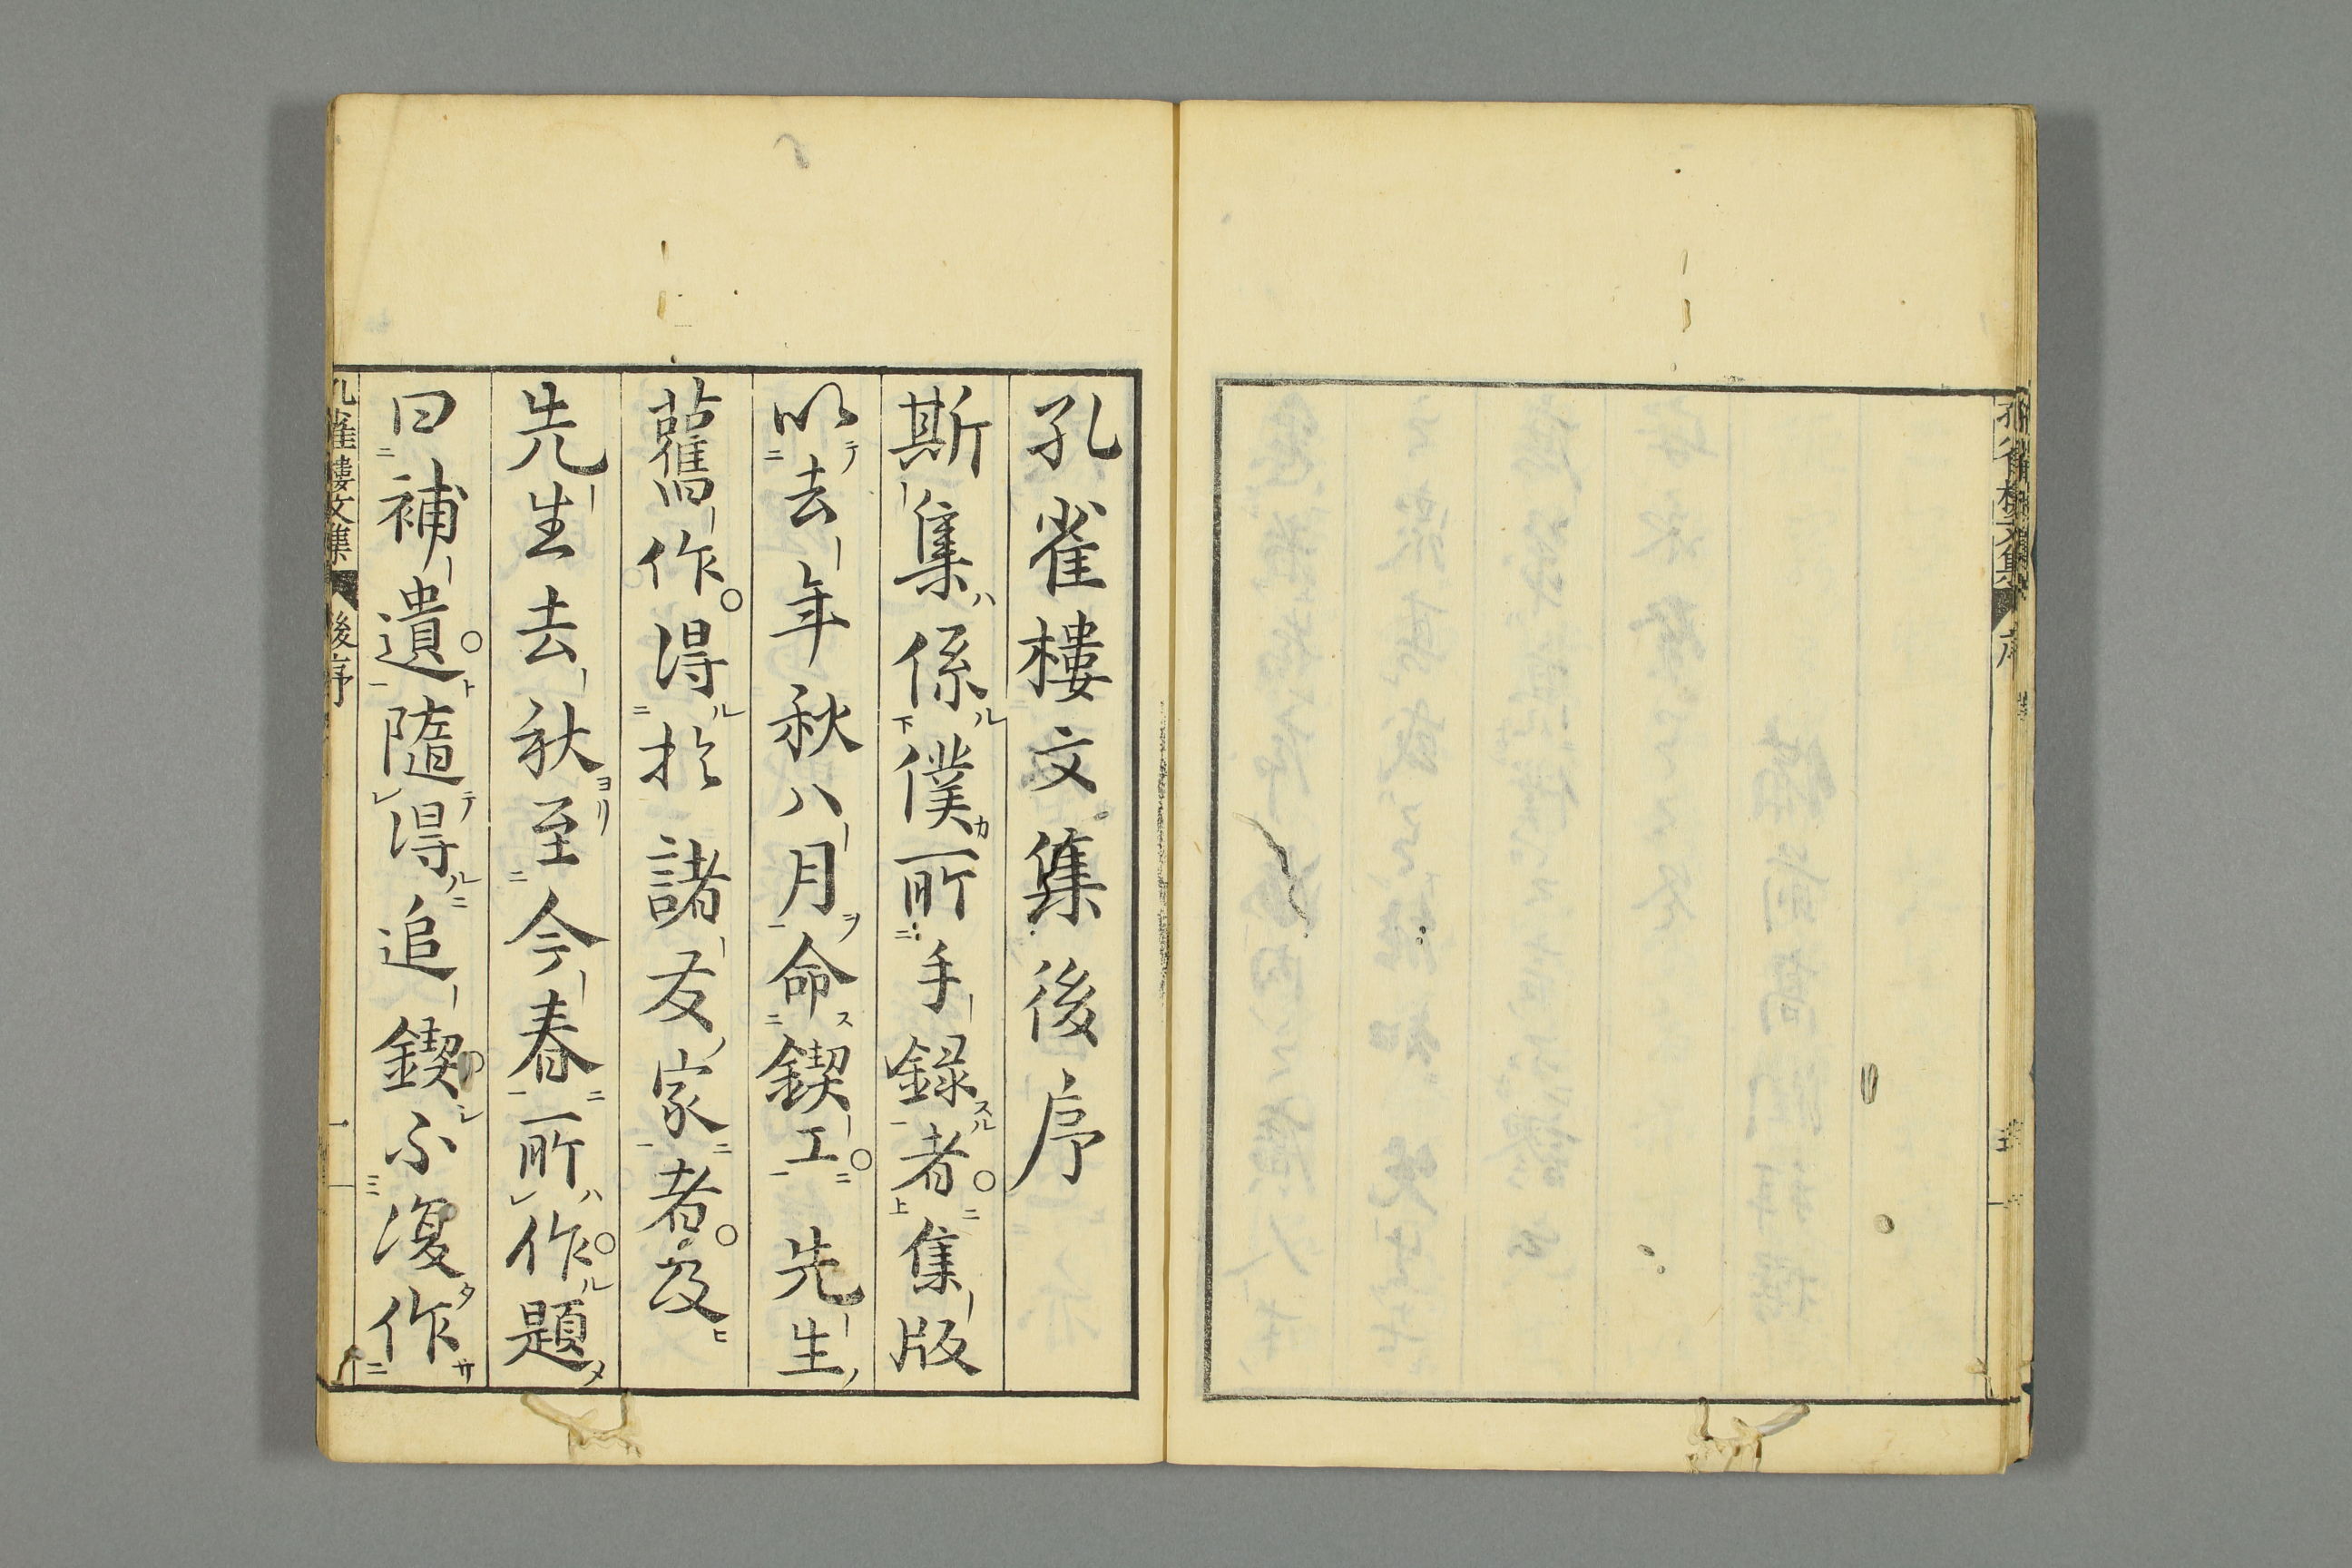 孔雀樓文集後序
斯集係僕所手録者集版
以去年秋八月命鍥工先生
舊作得於諸友家者及
先生去秋至今春所作題
曰補遺隨得追鍥不復作
孔雀樓文集 後序 一